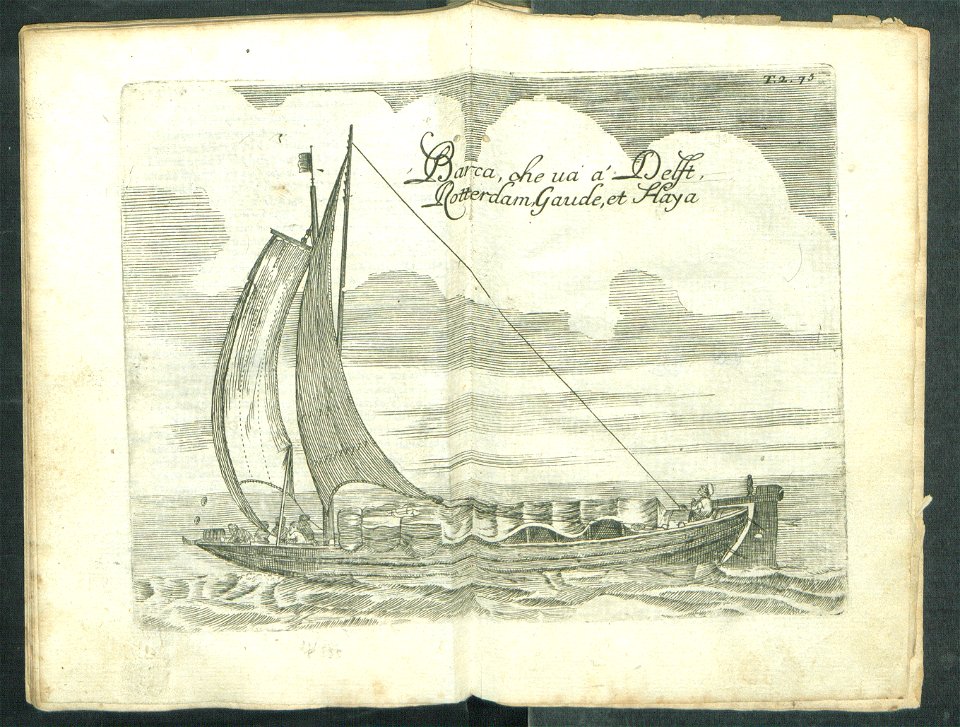 T. 2. 75
Barca, che ua a' Delft,
Rotterdam, Gaude, et Haya